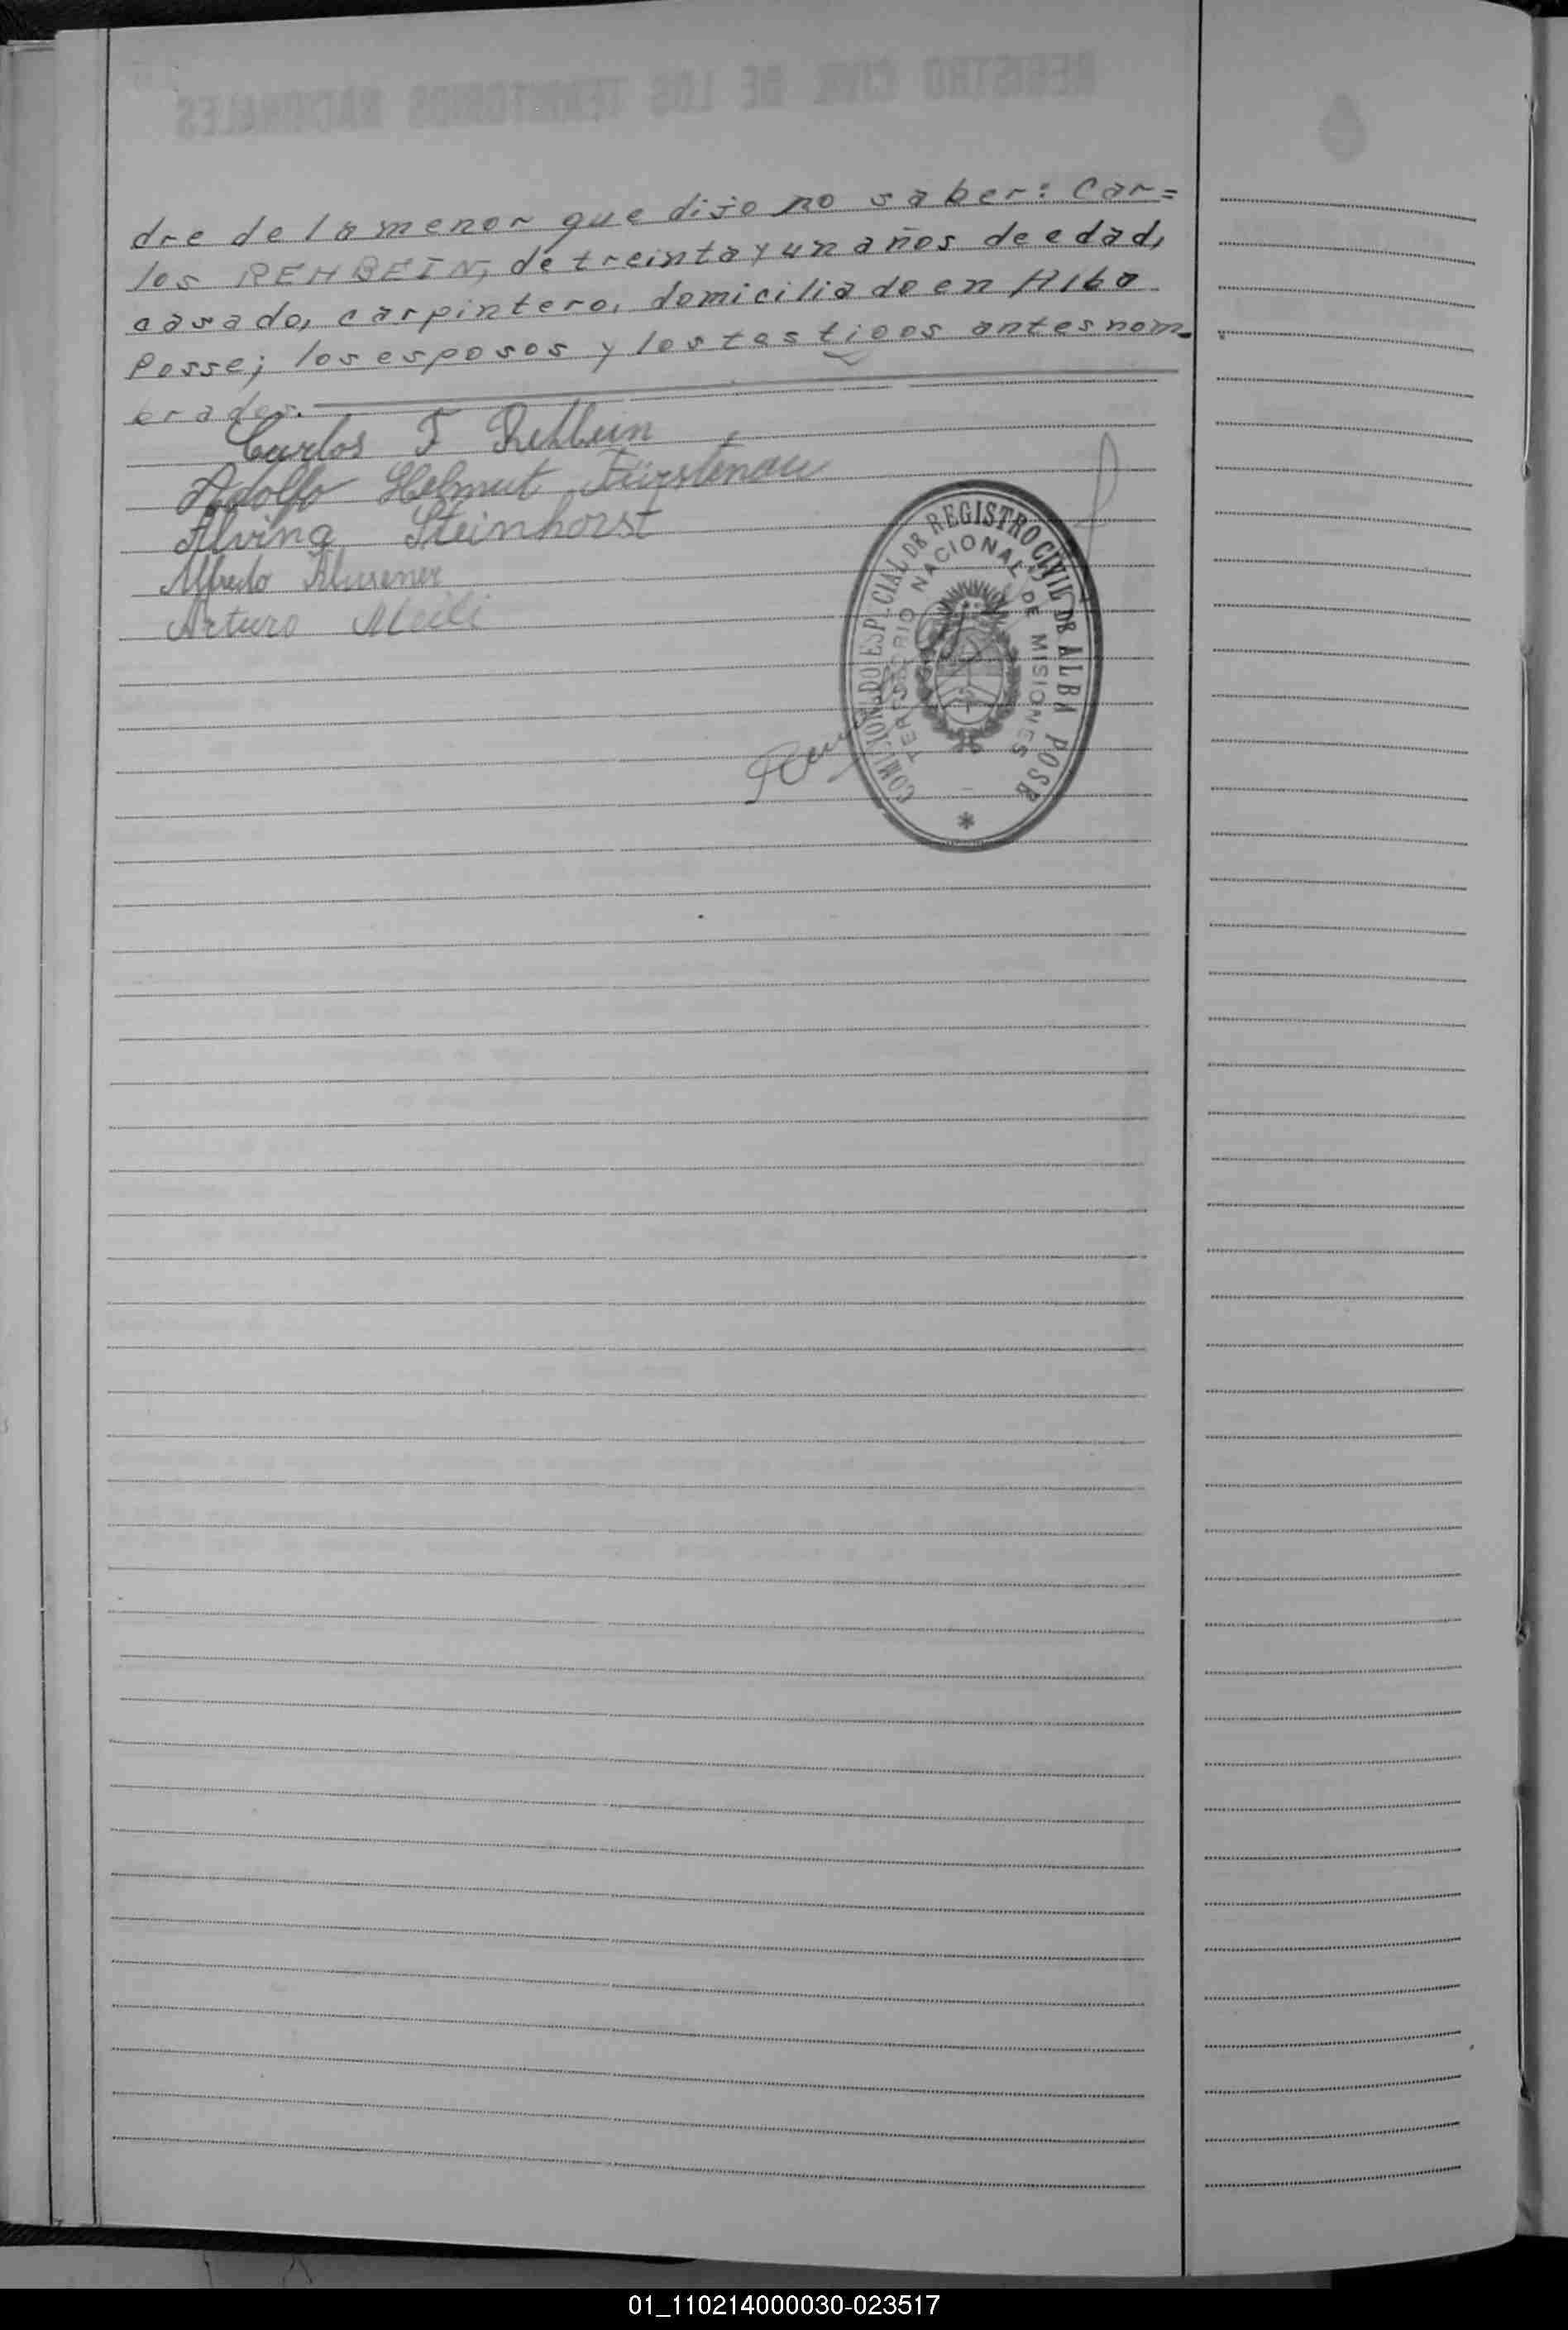 dre de la menor que dijo no saber: Car=
los REHBEIN, de treinta y un años de edad,
casado, carpintero, domiciliado en Alba
Posse; los esposos y los testigos antes nom-
brados.
Carlos F Rehbein
Adolfo Helmut Fürstenau
Alvina Steinhorst
Alfredo
Arturo Meili
COMISIONADO ESPECIAL DE REGISTRO CIVIL DE ALBA POSE
TERRITORIO NACIONAL DE MISIONES
REGISTRO CIVIL DE LOS TERRITORIOS NACIONALES
01_110214000030-023517